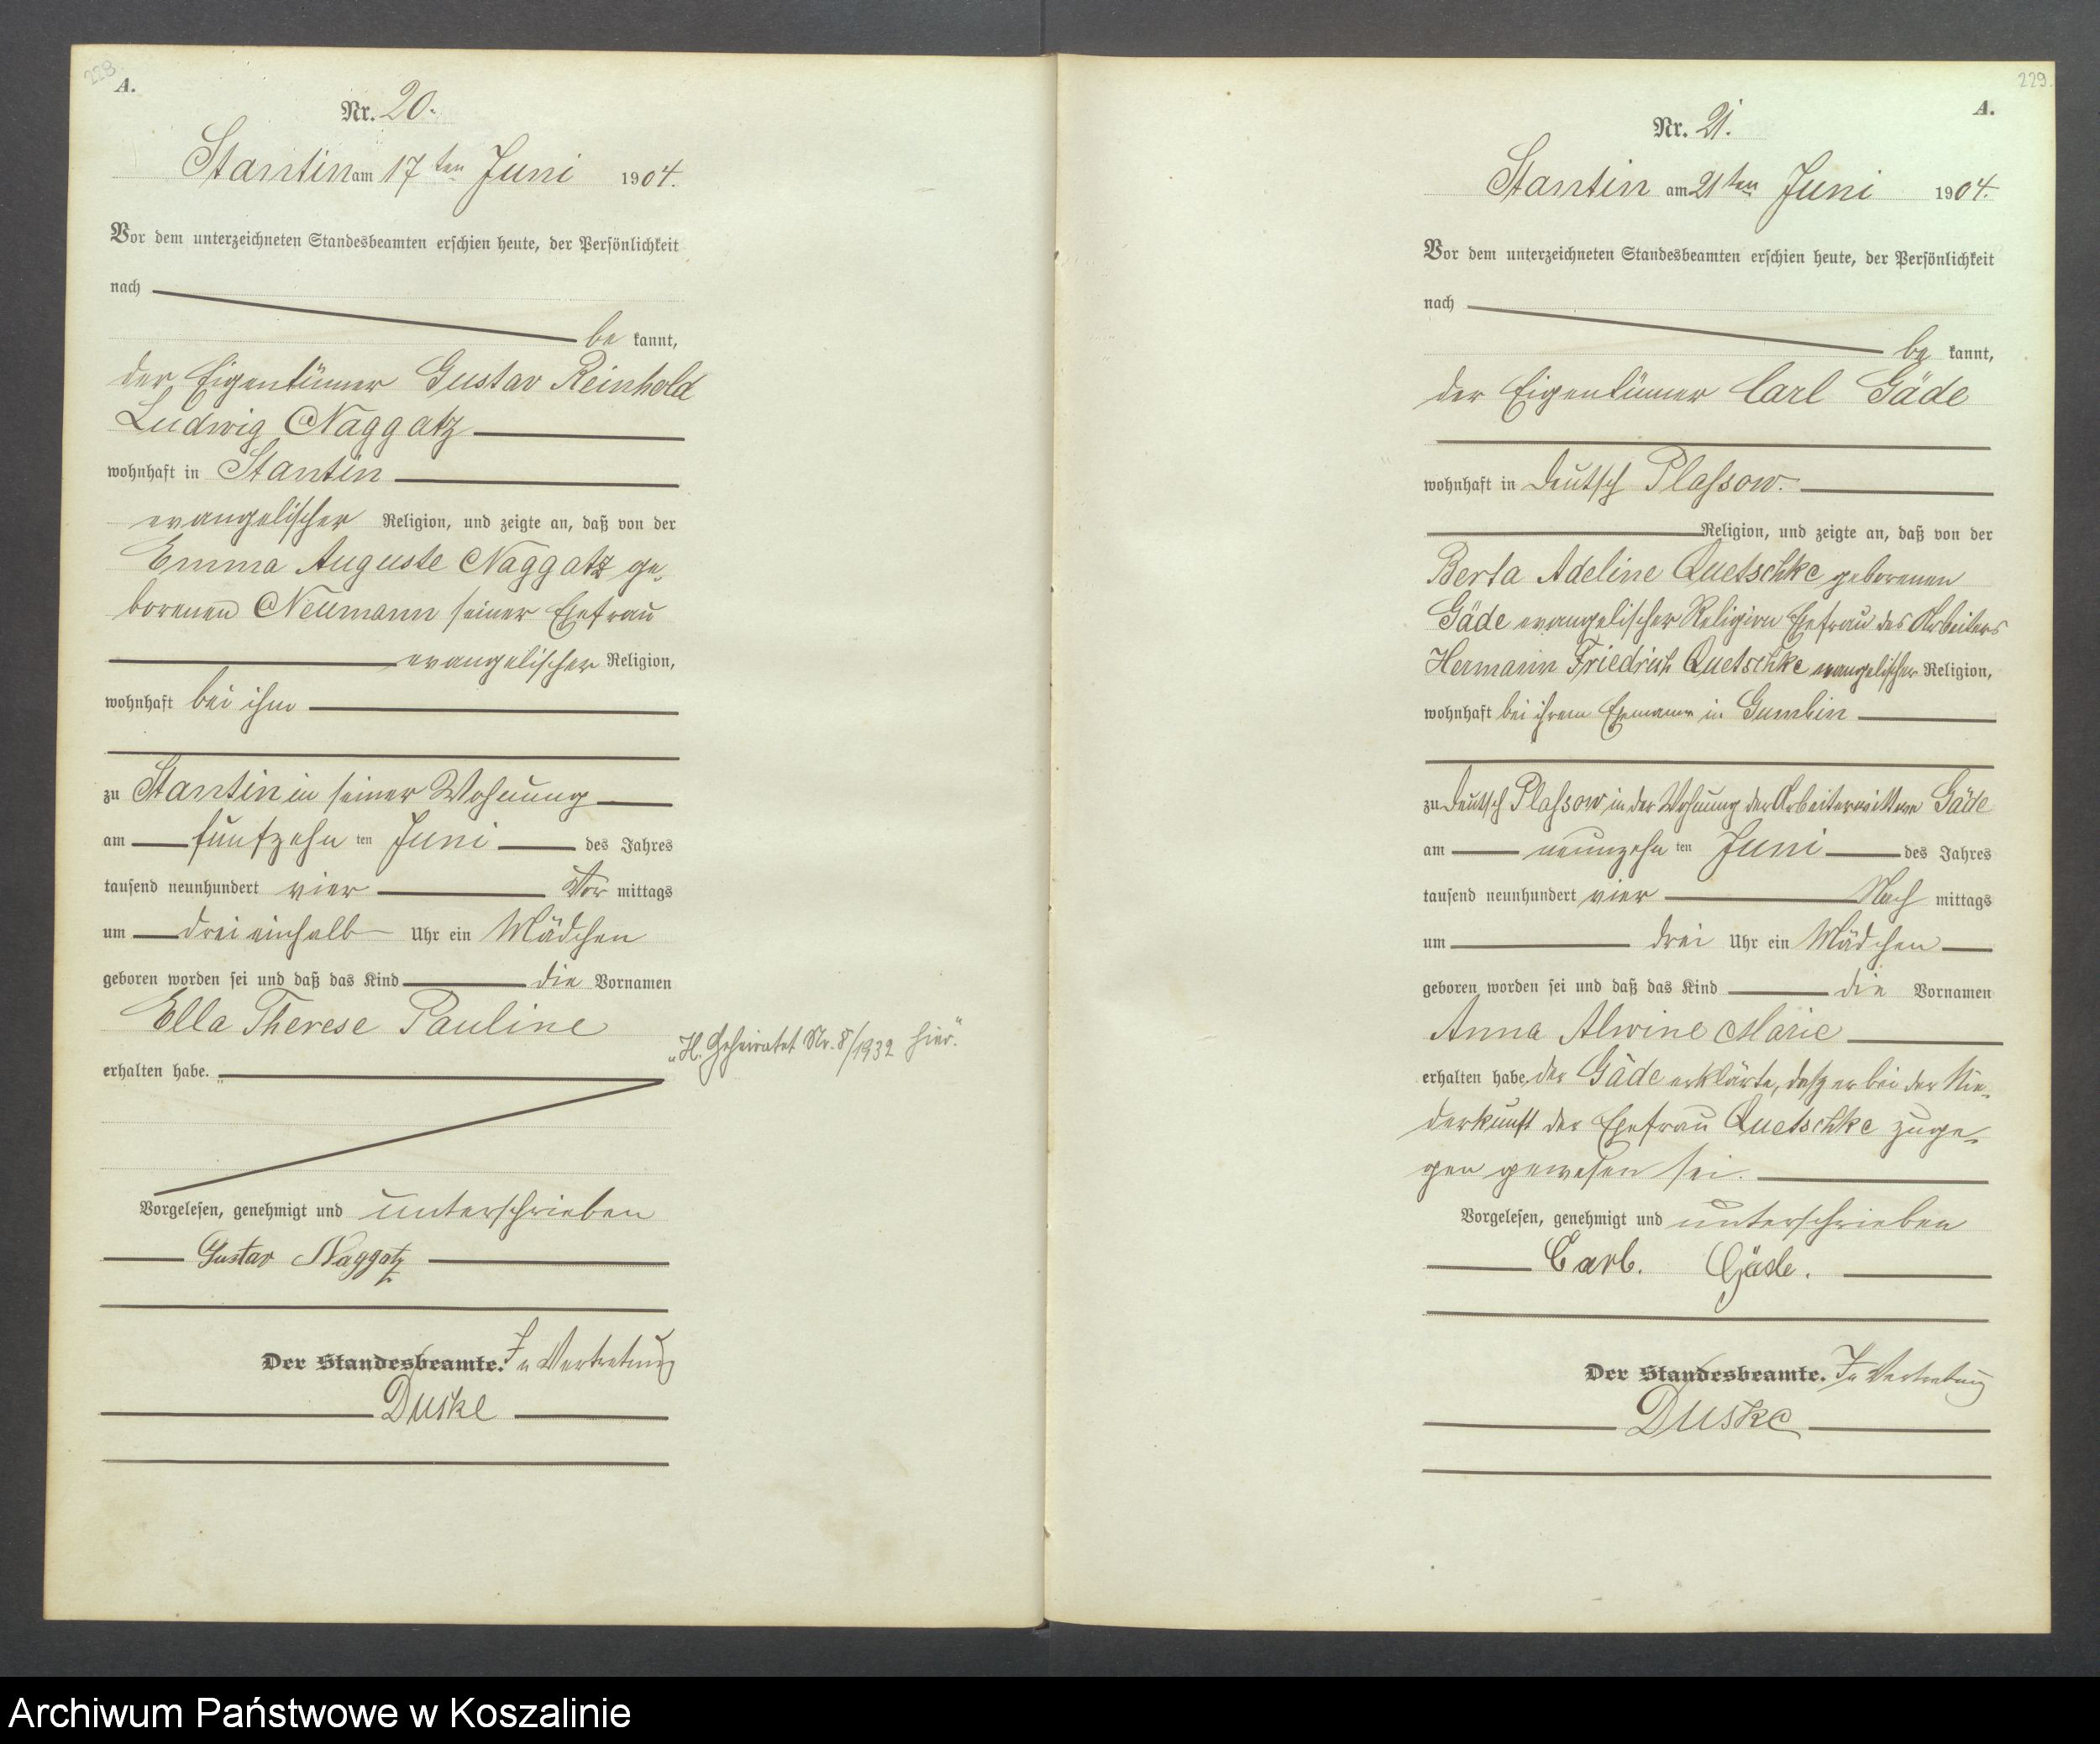 228.
A.
Nr. 20.
Stantin am 17ten Juni 1904.
Vor dem unterzeichneten Standesbeamten erschien heute, der Persönlichkeit
nach
be kannt,
der Eigentümer Gustav Reinhold
Ludwig Naggatz
wohnhaft in Stantin
evangelischer Religion, und zeigte an, daß von der
Emma Auguste Naggatz ge-
borenen Neumann seiner Ehefrau
evangelischer Religion,
wohnhaft bei ihm
zu Stantin in seiner Wohnung
am fünfzehn ten Juni des Jahres
tausend neunhundert vier Vor mittags
um drei einhalb Uhr ein Mädchen
geboren worden sei und daß das Kind die Vornamen
Ella Therese Pauline
erhalten habe.
"H. Geheiratet Nr. 8/1932 hier."
Vorgelesen, genehmigt und unterschrieben
Gustav Naggatz
Der Standesbeamte. In Vertretung
Duske
229.
A.
Nr. 21.
Stantin am 21ten Juni 1904.
Vor dem unterzeichneten Standesbeamten erschien heute, der Persönlichkeit
nach
be kannt,
der Eigentümer Carl Gäde
wohnhaft in Deutsch Plassow.
Religion, und zeigte an, daß von der
Berta Adeline Quetschke geborenen
Gäde evangelischer Religion Ehefrau des Arbeiters
Hermann Friedrich Quetschke evangelischer Religion,
wohnhaft bei ihrem Ehemann in Gumbin
zu Deutsch Plassow in der Wohnung der Arbeiterwittwe Gäde
am neunzehn ten Juni des Jahres
tausend neunhundert vier Nach mittags
um drei Uhr ein Mädchen
geboren worden sei und daß das Kind die Vornamen
Anna Alwine Marie
erhalten habe, der Gäde erklärte, daß er bei der Nie-
derkunft der Ehefrau Quetschke zuge-
gen gewesen sei.
Vorgelesen, genehmigt und unterschrieben
Carl. Gäde.
Der Standesbeamte. In Vertretung
Duske
Archiwum Państwowe w Koszalinie